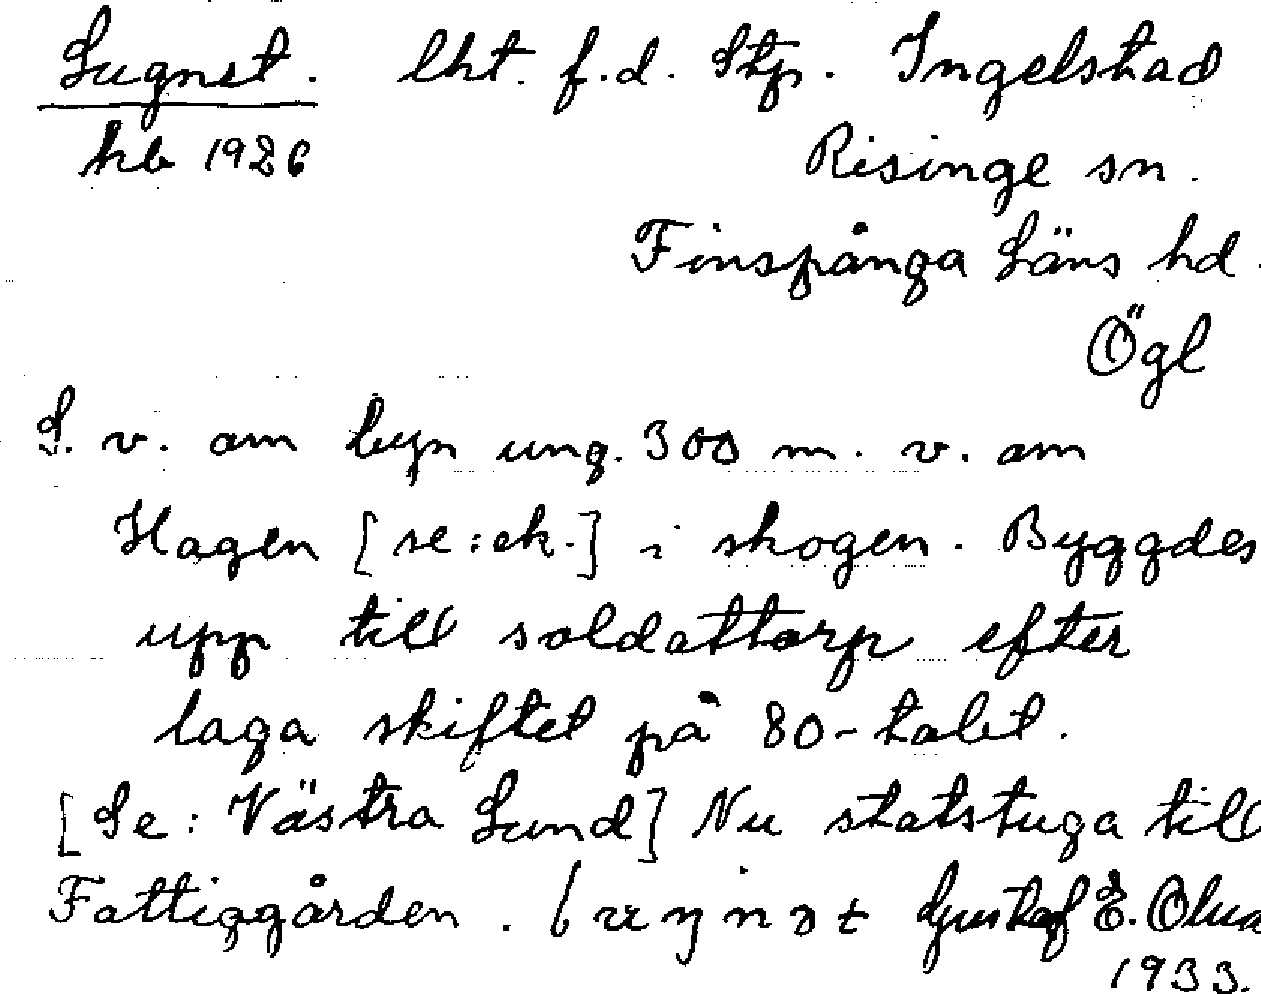 Lugnet. lht. f.d. Stp. Ingelstad
hb 1926 Risinge sn.
Finspånga Läns hd.
Ögl
S. v. om byn ung. 300 m. v. om
Hagen [se: ek.] i skogen. Byggdes
upp till soldattorp efter
laga skiftet på 80-talet.
[Se: Västra Lund] Nu statstuga till
Fattiggården. Gustaf E.
1933.